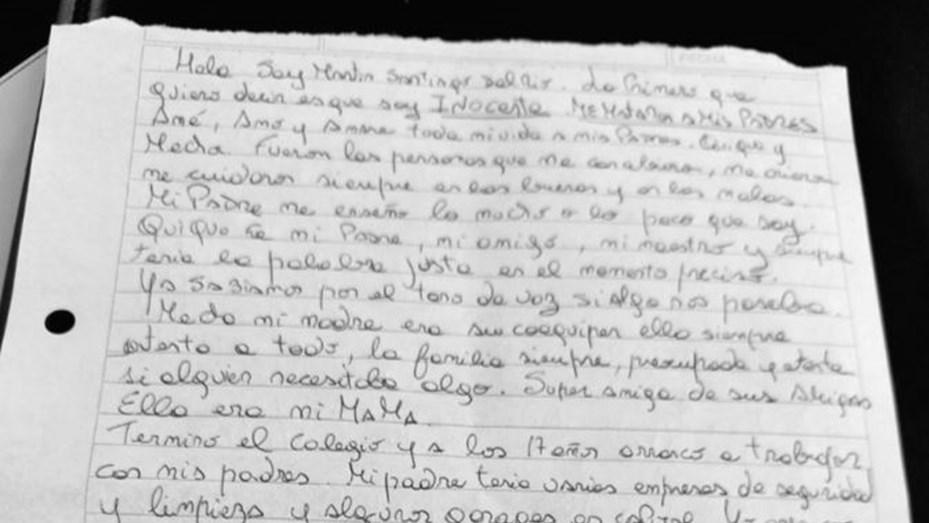 Hola Soy Martin Santiago Del Rio. Lo Primero que
quiero decir es que soy INOCENTE. ME MATARON A MIS PADRES
Amé, Amo y Amare toda mi vida a mis Padres. Quique y
Mecha. Fueron las personas que me me
me cuidaron siempre en las buenas y en las malas.
Mi Padre me enseño lo mucho o lo poco que soy.
Quique fue mi Padre, mi amigo, mi maestro y siempre
tenia la palabra justa en el momento preciso.
Ya sabiamos por el tono de voz si algo nos pasaba.
Mecha mi madre era su coequiper ella siempre
atenta a todo, la familia siempre, preocupada y atenta
si alguien necesitaba algo. Super amiga de sus Amigas
Ella era mi MaMa.
Termino el colegio y a los 17 años arranco a trabajar
con mis padres. Mi padre tenia varias empresas de seguridad
y limpieza y algunos